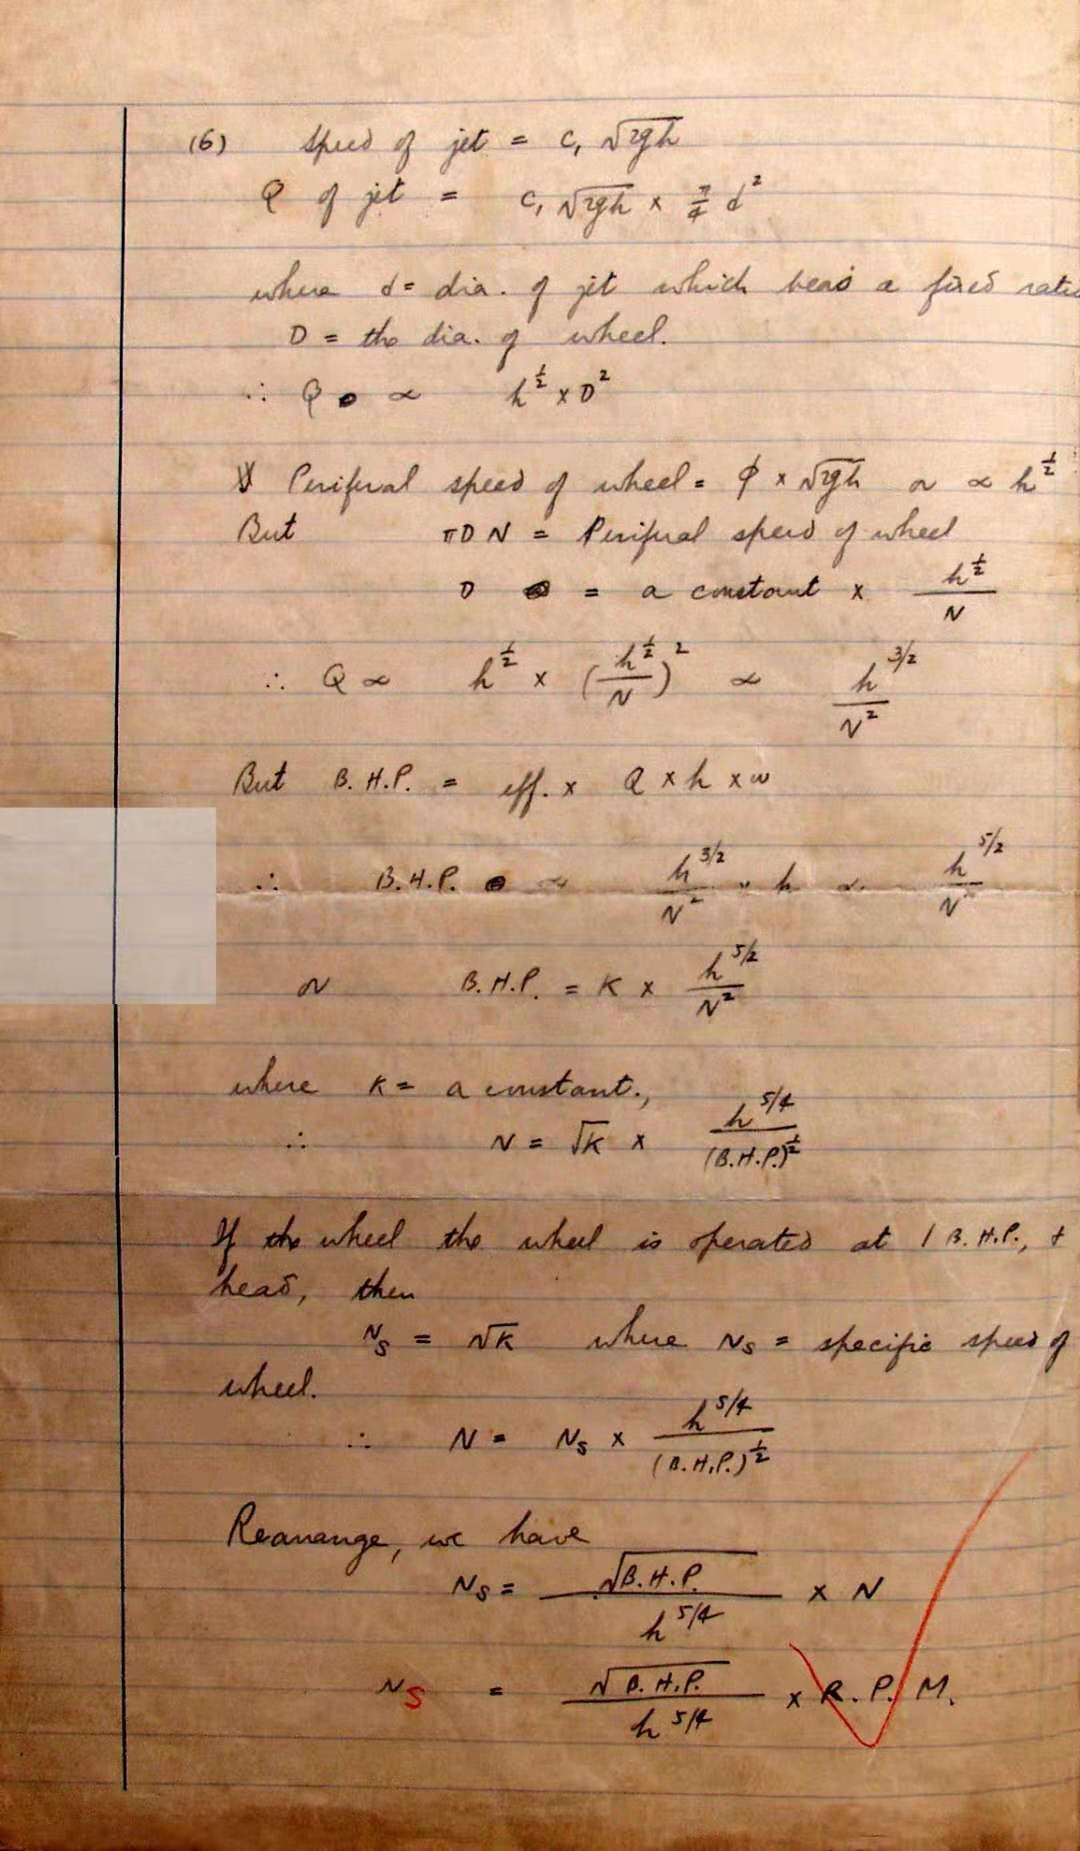 (6) Speed of jet = C₁ √2gh
Q of jet = C₁ √2gh × π/4 d²
where d = dia. of jet which bears a fixed ratio
D = the dia. of wheel.
∴ Q ∝ h^½ × D²
Periferal speed of wheel = φ × √2gh or ∝ h^½
But πDN = Periferal speed of wheel
D = a constant × h^½/N
∴ Q ∝ h^½ × (h^½/N)² ∝ h^3/2/N²
But B.H.P. = eff. × Q × h × w
∴ B.H.P. ∝ h^3/2/N² × h ∝ h^5/2/N²
or B.H.P. = K × h^5/2/N²
where K = a constant.,
∴ N = √K × h^5/4/(B.H.P.)^½
If the wheel the wheel is operated at 1 B.H.P., +
head, then
Ns = √K where Ns = specific speed of
wheel.
∴ N = Ns × h^5/4/(B.H.P.)^½
Rearange, we have
Ns = √B.H.P./h^5/4 × N
Ns = √B.H.P./h^5/4 × R.P.M.